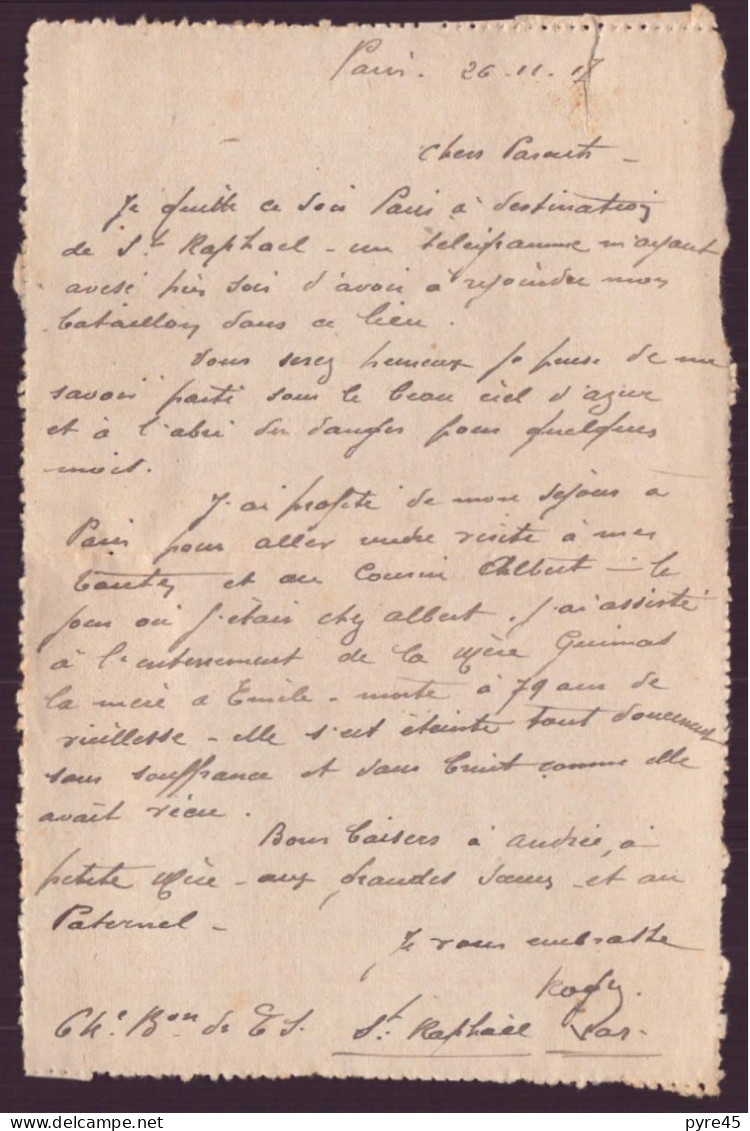 Paris. 26-11-17
Chers Parents -
Je quitte ce soir Paris à destination
de St Raphael - un télégramme m'ayant
avisé hier soir d'avoir à rejoindre mon
bataillon dans ce lieu.
Vous serez heureux je pense de me
savoir parti sous le beau ciel d'azur
et à l'abri du danger pour quelques
mois.
J'ai profité de mon séjour à
Paris pour aller rendre visite à mes
tantes et au cousin Albert - le
jour où j'étais chez Albert, j'ai assisté
à l'enterrement de la Mère Guimas
la mère à Emile - morte à 79 ans de
vieillesse - elle s'est éteinte tout doucement
sans souffrance et sans bruit comme elle
avait vécu.
Bons baisers à Andrée, à
petite Mère - aux grandes soeurs et au
Paternel -
Je vous embrasse
Bon de T S. St Raphaël Var.
pyre45